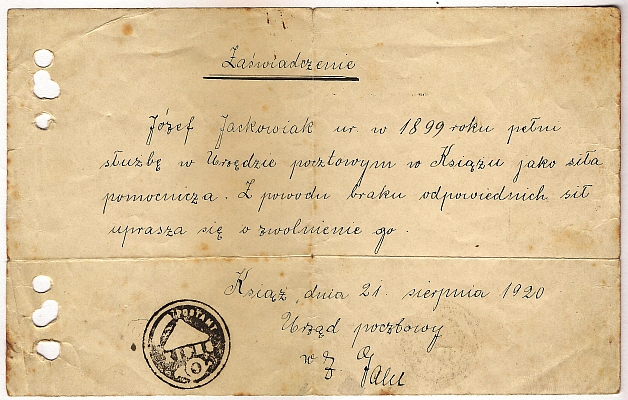 Zaświadczenie
Józef Jackowiak ur. w 1899 roku pełni
służbę w Urzędzie pocztowym w Książu jako siła
pomocnicza. Z powodu braku odpowiednich sił
uprasza się o zwolnienie go.
Książ dnia 21. sierpnia 1920
Urząd pocztowy
w z.